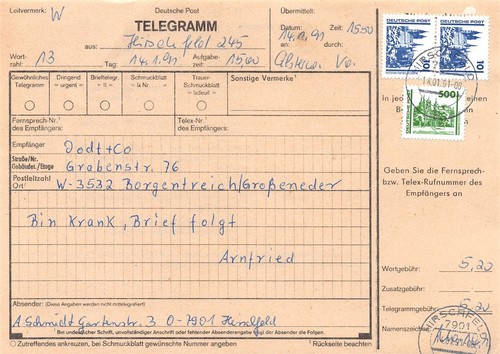 Leitvermerk: W
Deutsche Post
TELEGRAMM
aus: Hirschfeld 245
Übermittelt:
Datum: 14.1.91 Zeit: 1500
an: durch:
Wortzahl: 13 Tag: 14.1.91 Aufgabezeit: 1500
DEUTSCHE POST
DEUTSCHE POST
10
10
500
Gewöhnliches Telegramm
Dringend = urgent =
Brieftelegr. = lt =
Schmuckblatt = lx Nr. =
Trauer-Schmuckblatt = lxdeuil =
Sonstige Vermerke
Fernsprech-Nr. des Empfängers:
Telex-Nr. des Empfängers:
Empfänger Dodt+Co
Straße/Nr. Gebäudeteil/Etage Grabenstr. 76
Postleitzahl Ort W-3532 Borgentreich/Großeneder
Geben Sie die Fernsprech-
bzw. Telex-Rufnummer des
Empfängers an
Bin Krank, Brief folgt
Arnfried
Wortgebühr: 5,20
Zusatzgebühr:
Telegrammgebühr: 5,20
Namenszeichen:
7901
Absender: (Diese Angaben werden nicht mittelegrafiert)
A Schmidt Gartenstr. 3 O-7901 Hirschfeld
¹ Bei undeutlicher Schrift, unvollständiger Anschrift oder fehlender Absenderangabe trägt der Absender die Folgen.
Zutreffendes ankreuzen, bei Schmuckblatt gewünschte Nummer angeben
Rückseite beachten